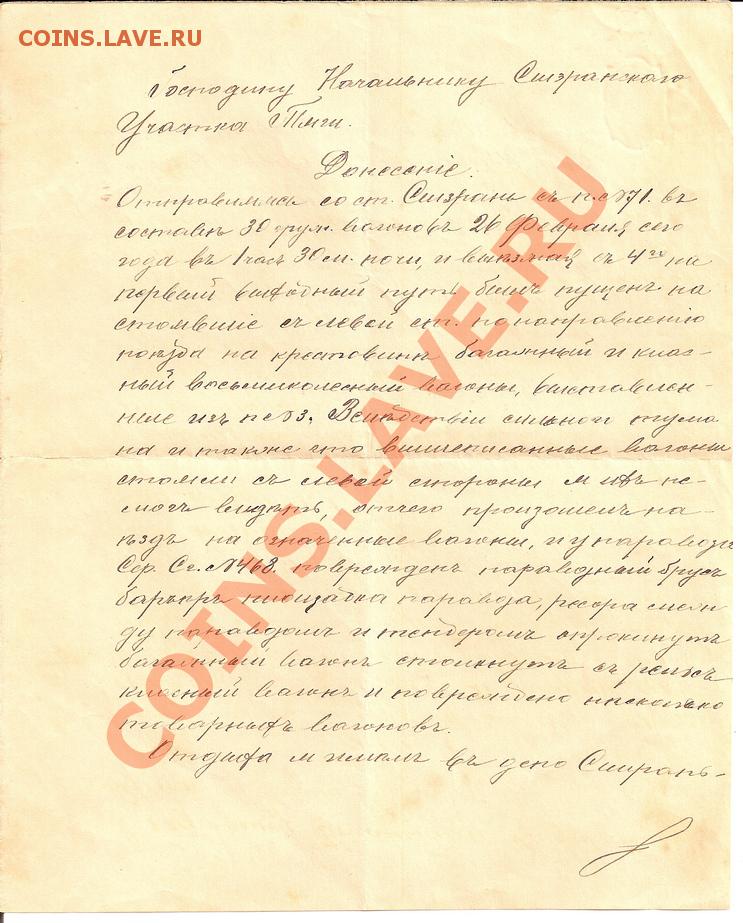 COINS.LAVE.RU
Господину Начальнику Сызранскаго
Участка Тяги.
Донесеніе.
Отправившись со ст. Сызрань съ п. № 71. въ
составѣ 30 груж. вагоновъ 26 Февраля сего
года въ 1 часъ 30 м. ночи, и выѣзжая съ 4го на
первый выходный путь былъ пущенъ на
стоявшіе съ левой ст. по направленію
поѣзда на крестовинѣ багажный и клас-
ный восьмиколесный вагоны, выставлен-
ные изъ п. № 3. Вслѣдствіи сильного тума
на и также что вышеписанные вагоны
стояли съ левой стороны я ихъ не-
могъ видѣть, отчего произошелъ на-
ѣздъ на означенные вагоны, и у паровоза
Сер. Сс. № 468. поврежденъ паравозный брусъ
барьеръ площадка паравоза, ресора между
паравозомъ и тендеромъ опрокинутъ
багажный вагонъ столкнутъ съ рельсъ
класный вагонъ и повреждено нисколько
товарныхъ вагоновъ.
Отдыха я имелъ въ депо Сызрань-
COINS.LAVE.RU